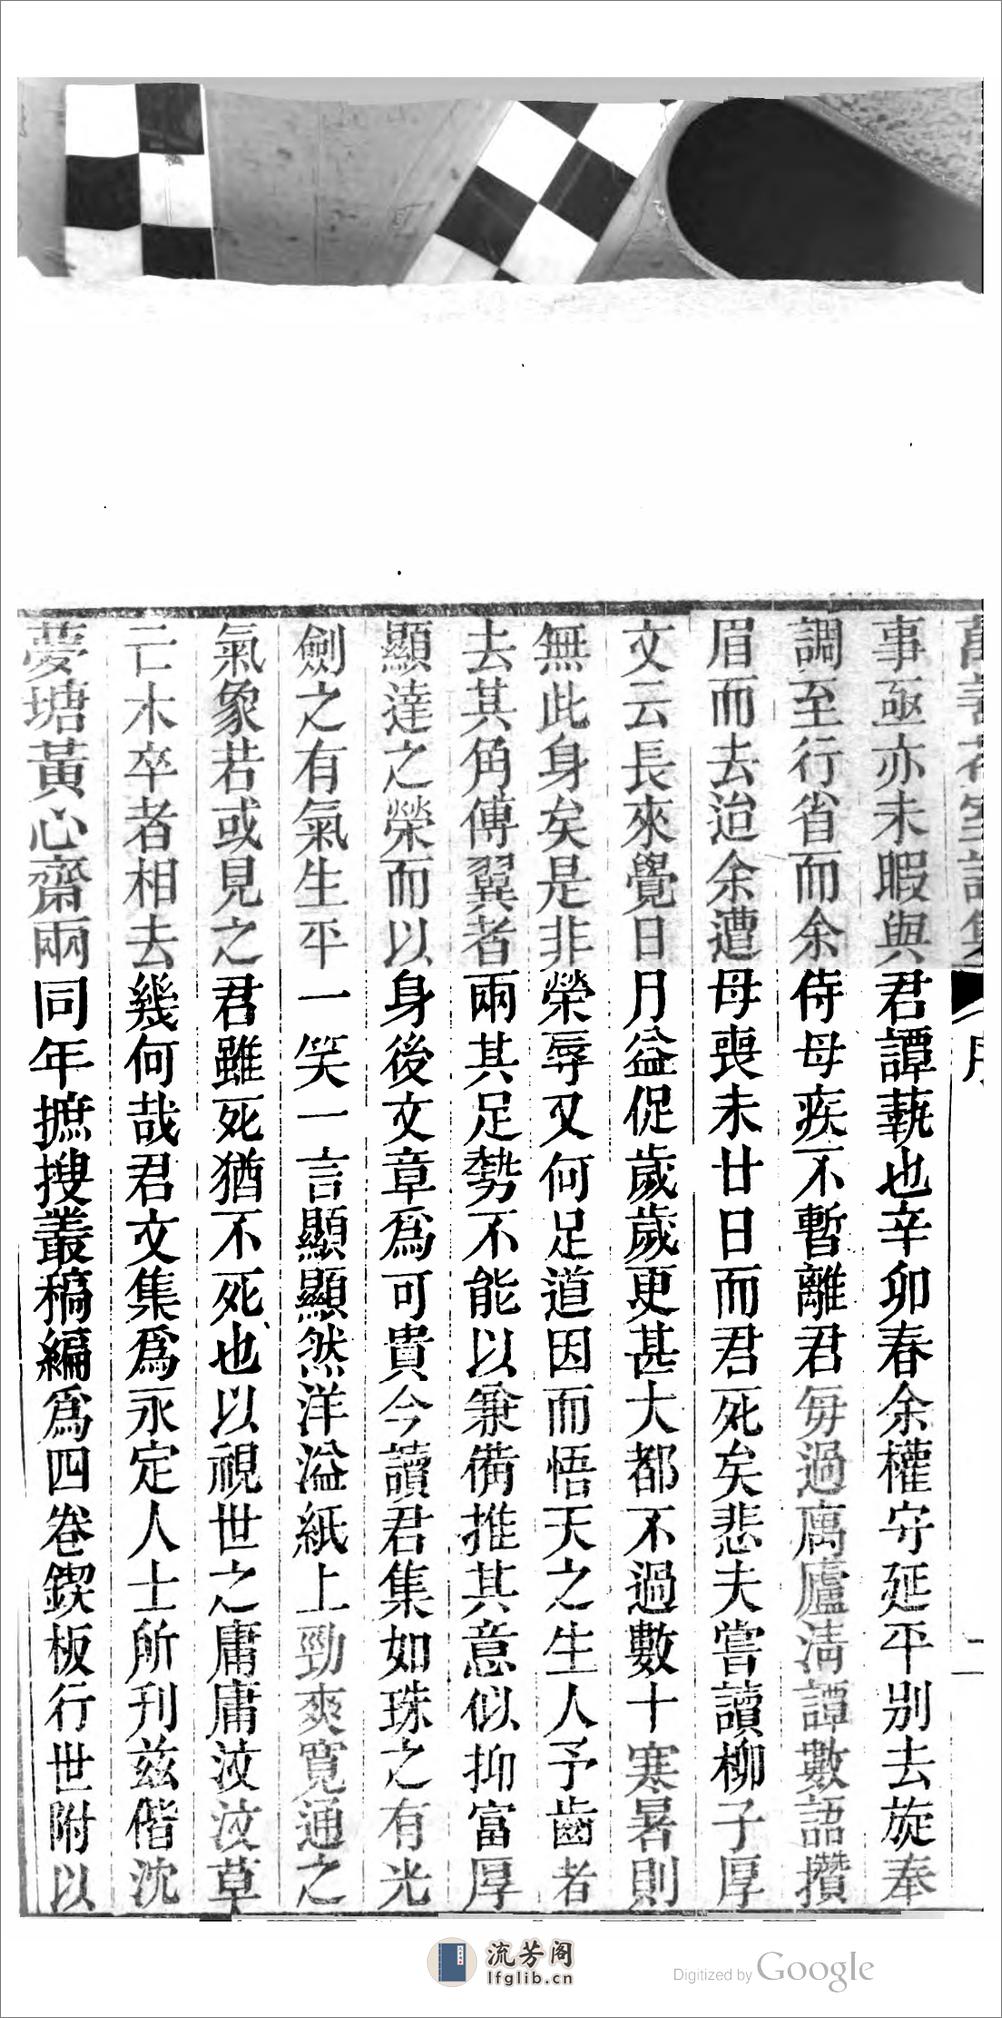 事亟亦未暇與君譚蓺也辛卯春余權守延平別去旋奉
調至行省而余侍母疾不暫離君每過寓廬淸譚數語攢
眉而去迨余遭母喪未廿日而君死矣悲夫嘗讀柳子厚
文云長來覺日月益促歲歲更甚大都不過數十寒暑則
無此身矣是非榮辱又何足道因而悟天之生人予齒者
去其角傅翼者兩其足勢不能以兼備推其意似抑富厚
顯達之榮而以身後文章爲可貴今讀君集如珠之有光
劍之有氣生平一笑一言顯顯然洋溢紙上勁爽寬通之
氣象若或見之君雖死猶不死也以視世之庸庸汶汶草
亡木卒者相去幾何哉君文集爲永定人士所刊兹偕沈
夢塘黃心齋兩同年摭搜叢稿編爲四卷鍥板行世附以
序
二
流芳阁
lfglib.cn
Digitized by Google